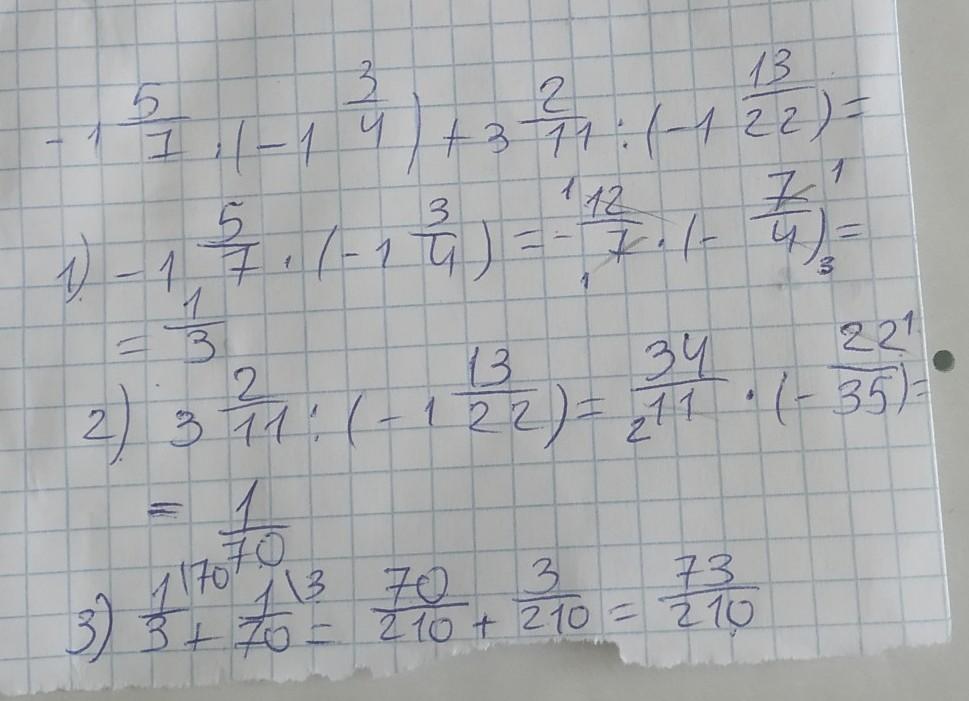 -1 5/7 · (-1 3/4) + 3 2/11 : (-1 13/22) =
1) -1 5/7 · (-1 3/4) = - 1 12/7 1 · (- 7 1/4 3) =
= 1/3
2) 3 2/11 : (-1 13/22) = 34/11 2 · (- 22 1/35) =
= 1/70
3) 1/3 \70 + 1/70 \3 = 70/210 + 3/210 = 73/210